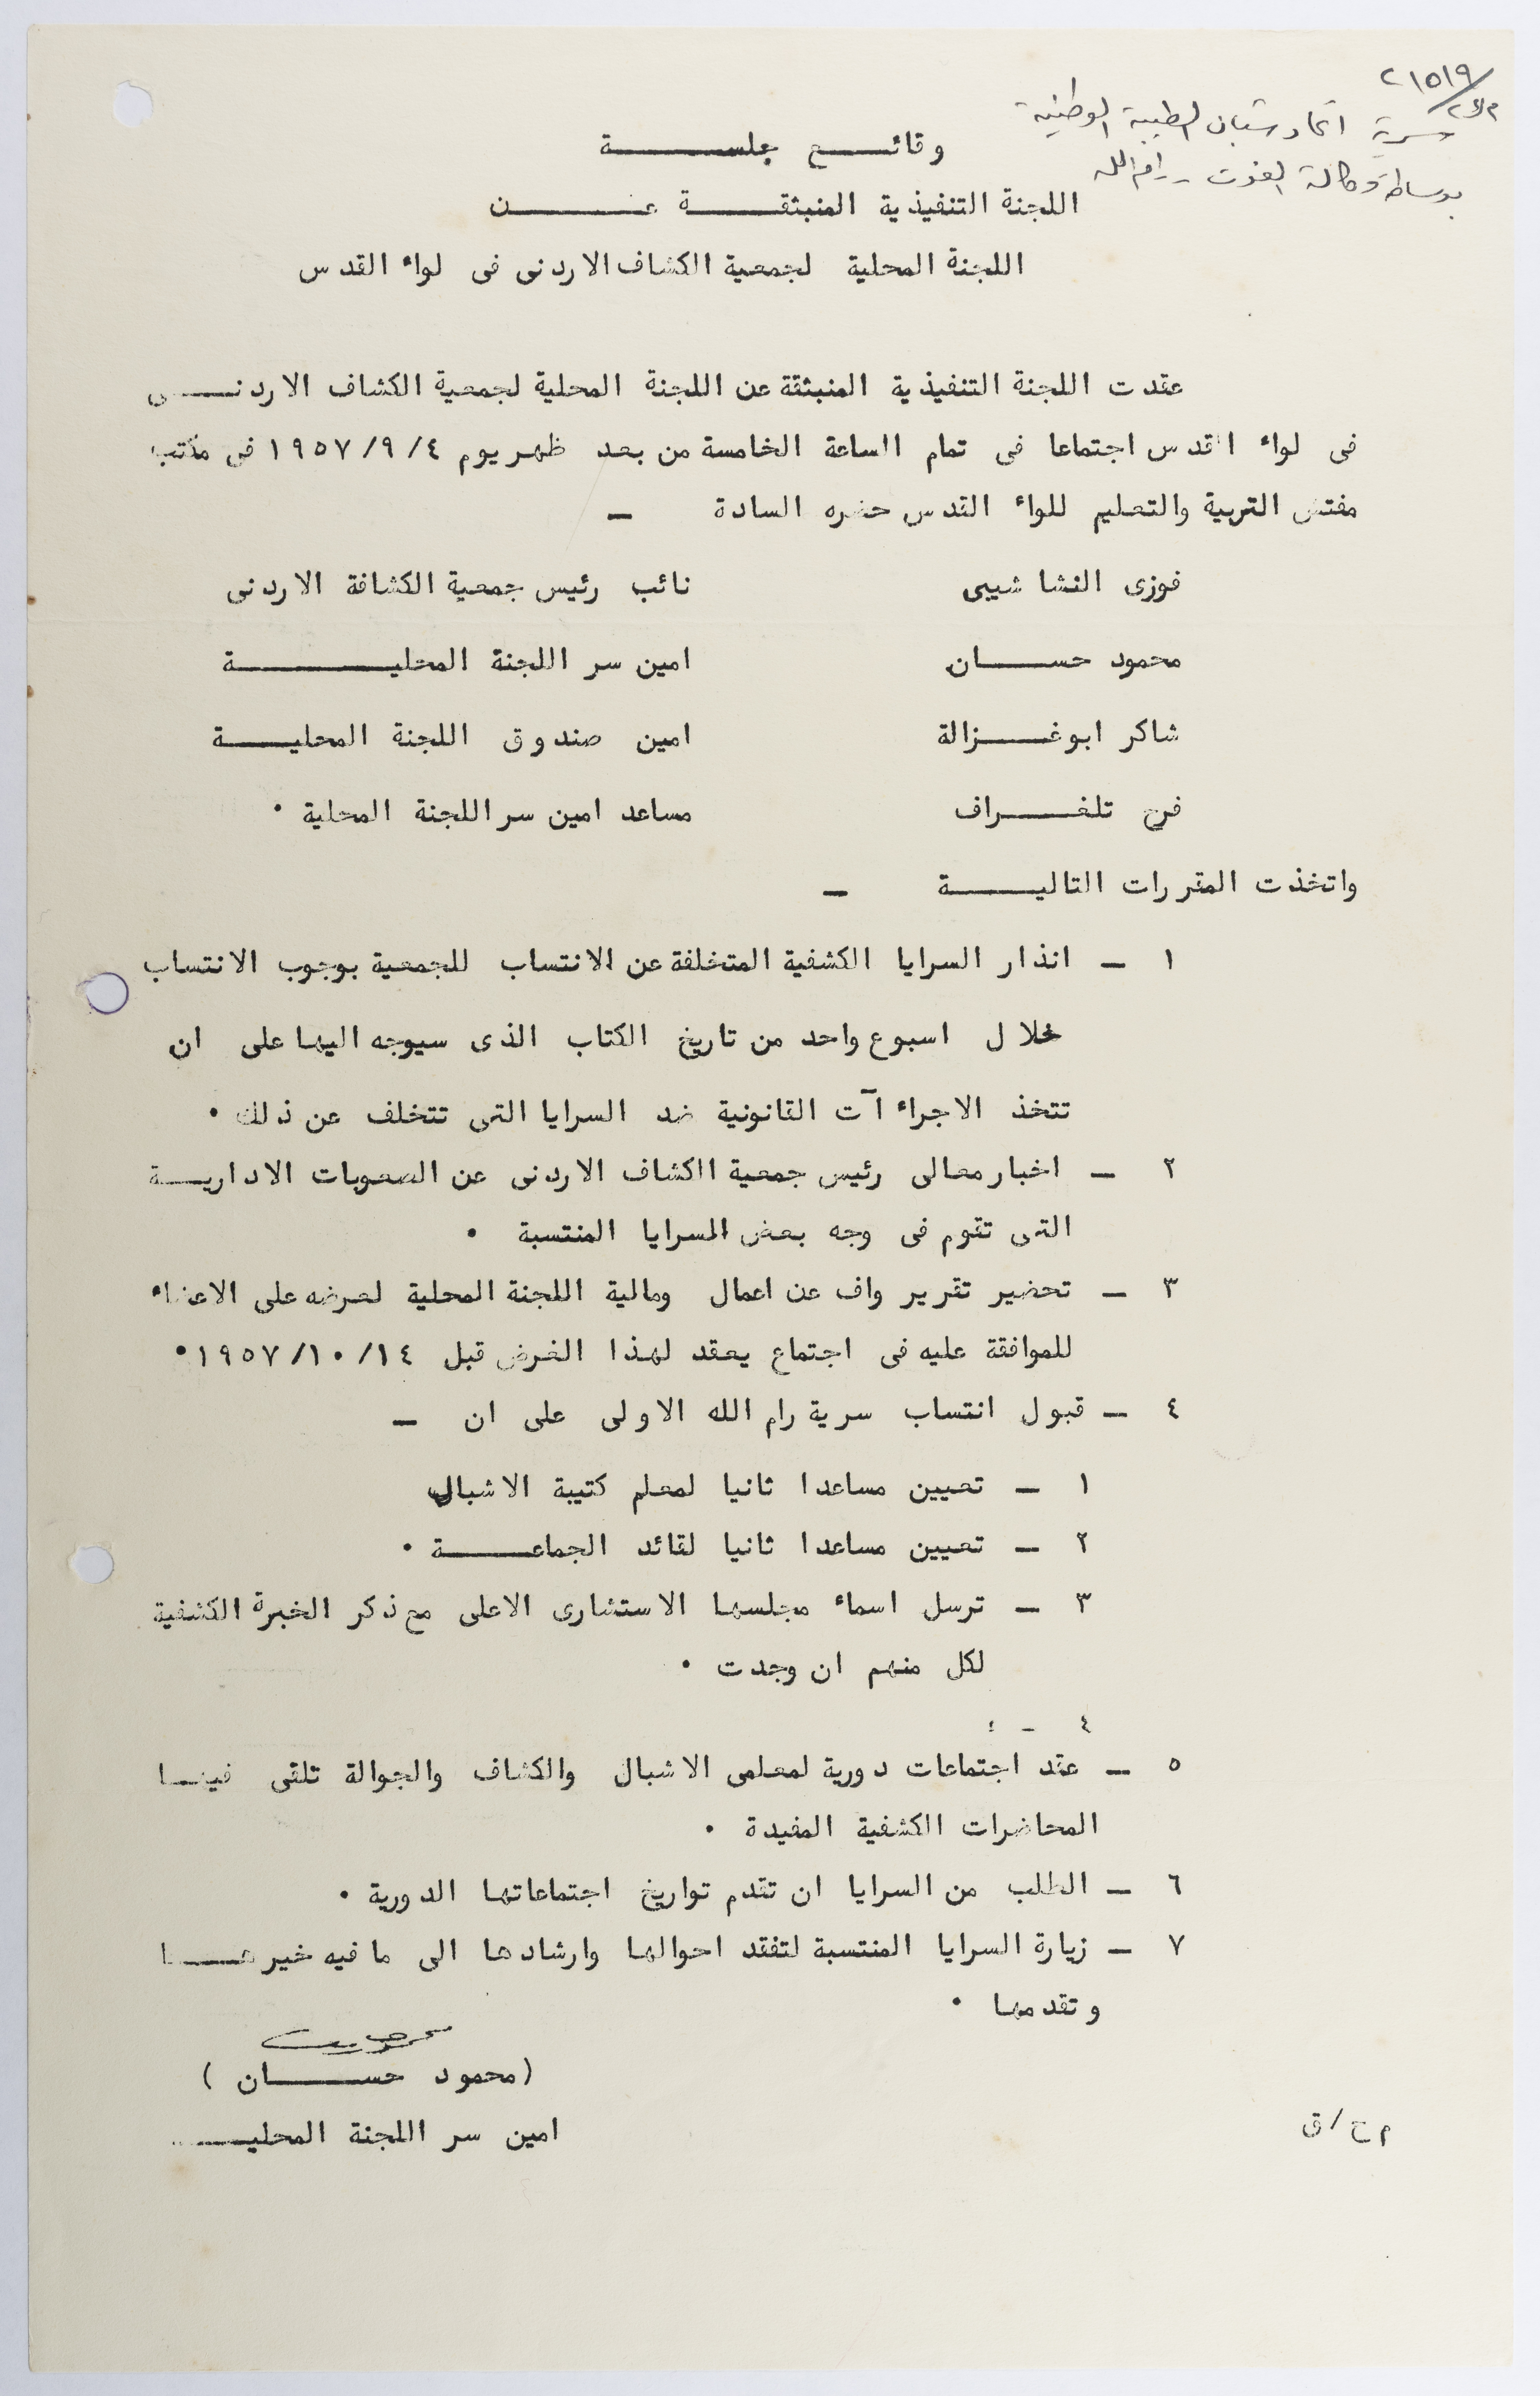 ٢١٥١٩
سرية اتحاد شبان الطيبة الوطنية
بوساطة وكالة الغوث - رام الله
وقائع جلسة
اللجنة التنفيذية المنبثقة عن
اللجنة المحلية لجمعية الكشاف الاردنى فى لواء القدس
عقدت اللجنة التنفيذية المنبثقة عن اللجنة المحلية لجمعية الكشاف الاردنى
فى لواء القدس اجتماعا فى تمام الساعة الخامسة من بعد ظهر يوم ١٩٥٧/٩/٤ فى مكتب
مفتش التربية والتعليم للواء القدس حضره السادة —
فوزى النشاشيبى نائب رئيس جمعية الكشافة الاردنى
محمود حسان امين سر اللجنة المحلية
شاكر ابوغزالة امين صندوق اللجنة المحلية
فرح تلغراف مساعد امين سر اللجنة المحلية ٠
واتخذت المقررات التالية —
١ — انذار السرايا الكشفية المتخلفة عن الانتساب للجمعية بوجوب الانتساب
خلال اسبوع واحد من تاريخ الكتاب الذى سيوجه اليها على ان
تتخذ الاجراءآت القانونية ضد السرايا التى تتخلف عن ذلك ٠
٢ — اخبار معالى رئيس جمعية الكشاف الاردنى عن الصعوبات الادارية
التى تقوم فى وجه بعض السرايا المنتسبة ٠
٣ — تحضير تقرير واف عن اعمال ومالية اللجنة المحلية لعرضه على الاعضاء
للموافقة عليه فى اجتماع يعقد لهذا الغرض قبل ١٩٥٧/١٠/١٤ ٠
٤ — قبول انتساب سرية رام الله الاولى على ان —
١ — تعيين مساعدا ثانيا لمعلم كتيبة الاشبال
٢ — تعيين مساعدا ثانيا لقائد الجماعة ٠
٣ — ترسل اسماء مجلسها الاستشارى الاعلى مع ذكر الخبرة الكشفية
لكل منهم ان وجدت ٠
٤ -
٥ — عقد اجتماعات دورية لمعلمى الاشبال والكشاف والجوالة تلقى فيها
المحاضرات الكشفية المفيدة ٠
٦ — الطلب من السرايا ان تقدم تواريخ اجتماعاتها الدورية ٠
٧ — زيارة السرايا المنتسبة لتفقد احوالها وارشادها الى ما فيه خيرها
وتقدمها ٠
(محمود حسان)
امين سر اللجنة المحلية
م ح / ق